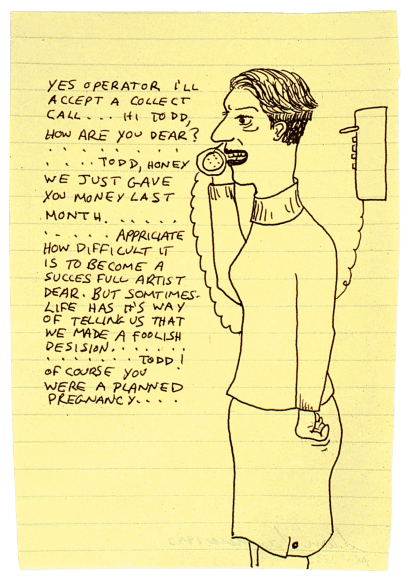 YES OPERATOR I'LL
ACCEPT A COLLECT
CALL.... HI TODD,
HOW ARE YOU DEAR?
. . . . . . . . . . .
. . . . . TODD, HONEY
WE JUST GAVE
YOU MONEY LAST
MONTH. . . . . .
. . . . . . APPRICIATE
HOW DIFFICULT IT
IS TO BECOME A
SUCCES FULL ARTIST
DEAR. BUT SOMTIMES-
LIFE HAS IT'S WAY
OF TELLING US THAT
WE MADE A FOOLISH
DESISION. . . . . . .
. . . . . . . . . TODD!
OF COURSE YOU
WERE A PLANNED
PREGNANCY. . . .